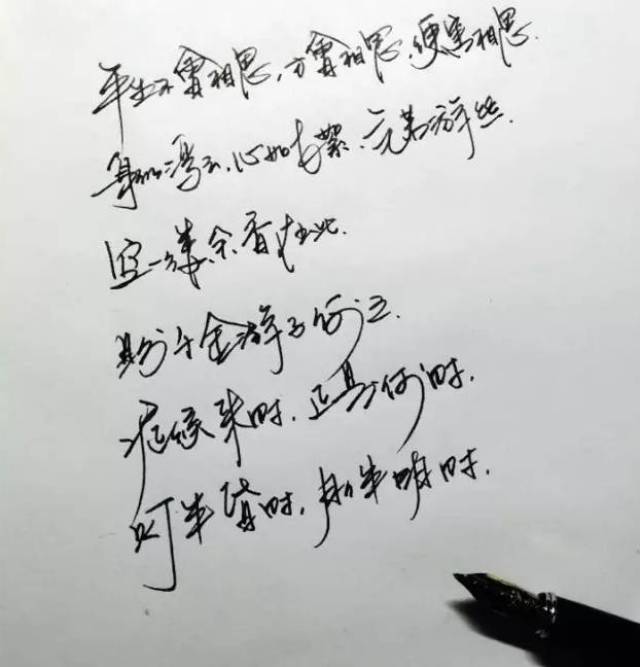 平生不会相思,方会相思,便害相思.
身如浮云,心如飞絮,气若游丝.
空一缕余香在此.
盼千金游子何之.
症候来时,正是何时.
灯半昏时,月半明时.